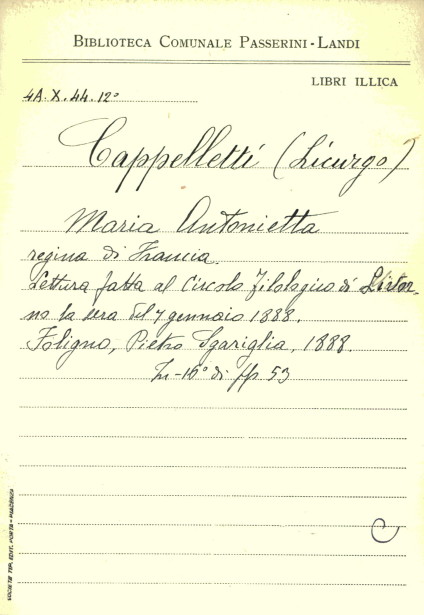 BIBLIOTECA COMUNALE PASSERINI-LANDI
LIBRI ILLICA
4A.X.44.12°
Cappelletti (Licurgo)
Maria Antonietta
regina di Francia.
Lettura fatta al Circolo Filologico di Livor-
no la sera del 7 gennaio 1888.
Foligno, Pietro Sgariglia, 1888.
In-16° di pp 53
C
SOCIETÀ TIP. EDIT. PORTA - PIACENZA